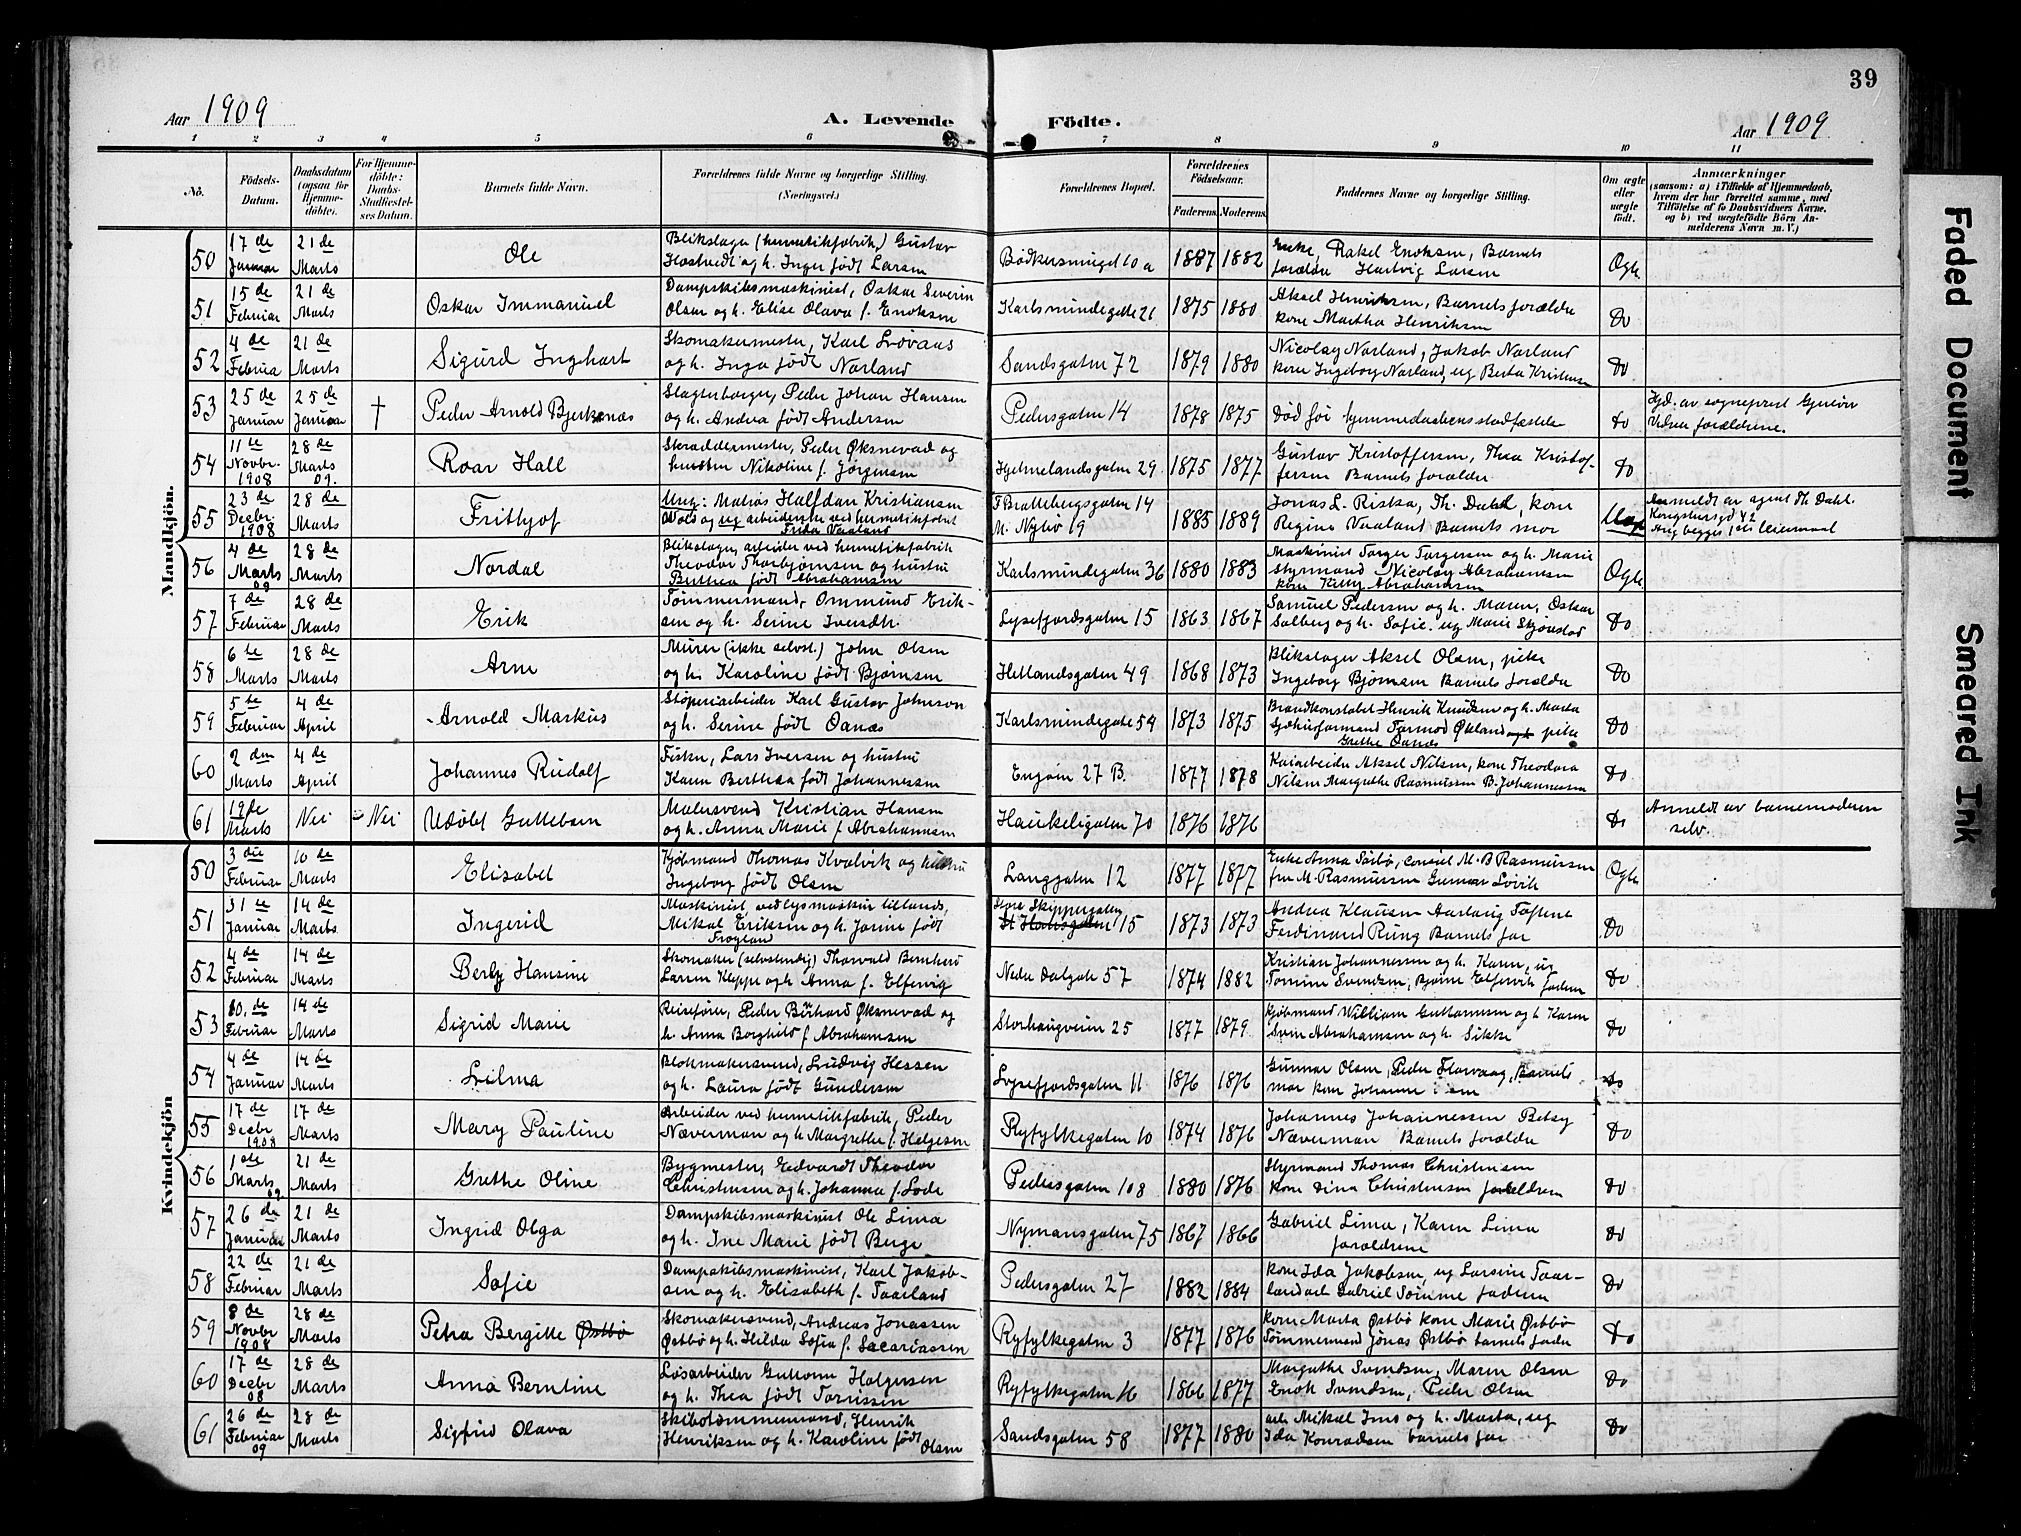 39
Aar 1909
A. Levende Födte.
Aar 1909
1 2 3 4 5 6 7 8 9 10 11
No.
Födsels-Datum.
Daabsdatum (ogsaa for Hjemme-döbte).
For Hjemme-döbte: Daabs-Stadfæstel-ses Datum.
Barnets fulde Navn.
Forældrenes fulde Navne og borgerlige Stilling.
(Næringsvei.)
Forældrenes Bopæl.
Forældrenes Födselsaar.
Faderens. Moderens.
Faddernes Navne og borgerlige Stilling.
Om ægte eller uægte födt.
Anmærkninger
(saasom: a) i Tilfælde af Hjemmedaab, hvem der har forrettet samme, med Tilföielse af to Daabsvidners Navne, og b) ved uægtefödte Börn An-melderens Navn m. V.)
Mandkjön.
50 17 de Januar 21 de Marts Ole Blikslager (hermetikfabrik) Gustav Hæstvedt og h. Inger født Larsen Bødkersmuget 10 a 1887 1882 Enke, Rakel Enoksen, Barnets forældre Hartvig Larsen Ogte
51 15 de Februar 21 de Marts Oskar Immanuel Dampskibsmaskinist, Oskar Severin Olsen og h. Elise Olava f. Enoksen Karlsmindegate 21 1875 1880 Aksel Henriksen, Barnets forældre kone Martha Henriksen Do
52 4 de Februa 21 de Marts Sigurd Inghart Skomakermester, Karl Løvaas og h. Inga født Norland Sandsgaten 72 1879 1880 Nicolay Norland, Jakob Norland kone Ingeborg Norland, ug Berta Kristensen Do
53 25 de Januar 25 de Januar † Peder Arnold Bjerkenæs Slagterborger, Peder Johan Hansen og h. Andrea født Andersen Pedersgaten 14 1878 1875 Død før hjemmedaabens stadfæstelse Do Hjd. av sogneprest Vidner forældrene.
54 11 te Novbr. 1908 28 de Marts 09. Roar Hall Skræddermester, Peder Øksnevad og hustru Nikoline f. Jørgensen Hjelmelandsgaten 29 1875 1877 Gustav Kristoffersen, Thea Kristoffersen Barnets forældre Do
55 23 de Decbr. 1908 28 de Marts Frithjof Ung: Matias Halfdan Kristiansen Wold og ug arbeiderske ved hermetikfabrik Frida Vaaland F Brattebergsgaten 14 M. Nybø 19 1885 1889 Jonas L. Riska, Th. Dahl, kone Regine Vaaland Barnets mor Uæg Anmeldt av agent Th Dahl. Kongsteinsgd 42 Ang begges 1ste leiermaal
56 4 de Marts 09 28 de Marts Nordal Blikslager, arbeider ved hermetikfabrik Theodor Thorbjørnsen og hustru Berthea født Abrahamsen Karlsmindegaten 36 1880 1883 Maskinist Torger Torgersen og h. Marie Styrmand Nicolay Abrahamsen kone Kitty Abrahamsen Ogte
57 7 de Februar 28 de Marts Erik Tømmermand, Ommund Eriksen og h. Serine Iversdtr. Lysefjordsgaten 15 1863 1867 Samuel Pedersen og h. Maren, Oskar Solberg og h. Sofie. ug Marie Skjønstad Do
58 6 te Marts 28 de Marts Arne Murer (ikke selvst.) John Olsen og h. Karoline født Bjørnsen Hetlandsgaten 49 1868 1873 Blikslager Aksel Olsen, pike Ingeborg Bjørnsen Barnets forældre Do
59 5 te Februar 4 de April Arnold Markus Støperiarbeider Karl Gustav Johnsen og h. Serine født Oanæs Karlsmindegate 54 1873 1875 Brandkonstabel Henrik Knudsen og h. Marta Sjøkurformand Tormod Økland og h pike Grethe Oanæs Do
60 2 den Marts 4 de April Johannes Rudolf Fisker, Lars Iversen og hustru Karen Berthea født Johannessen Engøen 27 B. 1877 1878 Kaiarbeider Aksel Nilsen, kone Theodora Nilsen Margrethe Rasmussen B. Johannessen Do
61 19 de Marts Nei Nei Udøbt Guttebarn Malersvend Kristian Hansen og h. Anna Marie f Abrahamsen Haukeligaten 70 1876 1876 Do Anmeldt av barnemoderen selv.
Kvindekjön
50 3 die Februar 10 de Marts Elisabet Kjøbmand Thomas Kvalvik og hustru Ingeborg født Olsen Langgaten 12 1877 1877 Enke Anna Sørbø, consul M. B Rasmussen fru M. Rasmussen Gunnar Løvik Ogte
51 31 te Januar 14 de Marts Ingerid Maskinist, ved lysmaskin tillands, Mikal Eriksen og h. Janne født Frøyland Store Skippergaten St Hansgaten 15 1873 1873 Andrea Klausen Aarlaug Toftene Ferdinand Ring Barnets far Do
52 4 de Februar 14 de Marts Berly Hansine Skomaker (selvstendig) Thorvald Bernhard Laren Kleppe og h. Anna f. Elfervig Nedre Dalgate 57 1874 1882 Kristian Johannessen og h. Karen, ug Tomine Svendsen, Bjørne Elfervik faderen Do
53 10. de Februar 14 de Marts Sigrid Marie Reisefører, Peder Bürhard Øksnevad og h. Anna Borghild f Abrahamsen Storhaugveien 25 1877 1879 Kjøbmand William Guttormsen og h Karen Sven Abrahamsen og h. Sikke Do
54 4 de Januar 14 de Marts Lilma Blokmakersvend, Ludvig Hessen og h. Laura født Gundersen Lysefjordsgaten 11 1876 1876 Gunnar Olsen, Peder Florvaag, Barnets mor kone Johanne Do
55 17 de Decbr 1908 17 de Marts Mary Pauline Arbeider ved hermetikfabrik, Peder Næverman og h. Margrethe f. Helgesen Ryfylkegaten 10 1874 1876 Johannes Johannessen Betsy Næverman Barnets forældre Do
56 1 ste Marts 09 21 de Marts Grethe Oline Bygmester, Edvardt Theodor Christensen og h. Johanna f. Lode Pedersgaten 108 1880 1876 Styrmand Thomas Christensen kone Dina Christensen forældren Do
57 26 de Januar 21 de Marts Ingrid Olga Dampskibsmaskinist Ole Lima og h. Ine Marie født Berge Nymansgaten 75 1867 1866 Gabriel Lima, Karen Lima forældrene Do
58 22 de Februar 21 de Marts Sofie Dampskibsmaskinist, Karl Jakobsen og h. Elizabeth f. Taarland Pedersgaten 27 1882 1884 kone Ida Jakobsen, ug Larsine Taarland arb Gabriel Tomme faderen Do
59 8 de Novbr 1908 28 de Marts Petra Bergitte Østbø Skomakersvend, Andreas Jonassen Østbø og h. Hilda Sofia f. Sacariassen Ryfylkegaten 3 1877 1876 kone Marta Østbø kone Marie Østbø Tømmermand Jonas Østbø barnets fader Do
60 17 de Decbr 08 28 de Marts Anna Berntine Løsarbeider Guttorm Holgersen og h. Thea født Tørrissen Ryfylkegaten 16 1866 1877 Margrethe Svendsen, Maren Olsen Enok Svendsen, Peder Olsen Do
61 26 de Februar 09 28 de Marts Sigfrid Olava Skibstømmermand, Henrik Henriksen og h. Karoline født Olsen Sandsgaten 58 1877 1880 arb Mikal Ims og h. Marta, ug Ida Konradsen barnets far Do
Faded Document
Smeared Ink